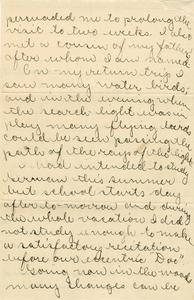 persuaded me to prolong the
visit to two weeks. I also
met a cousin of my father
after whom I am named.
On my return trip I
saw many water birds;
and in the evening when
the search light was in
play many flying
could be seen passing the
path of the rays of the light.
I had intended to study
German this summer
but school starts day
after to-morrow and during
the whole vacation I did
not study enough to make
a satisfactory recitation
before our eccentric "Doc"
Going now in the woods
many changes can be